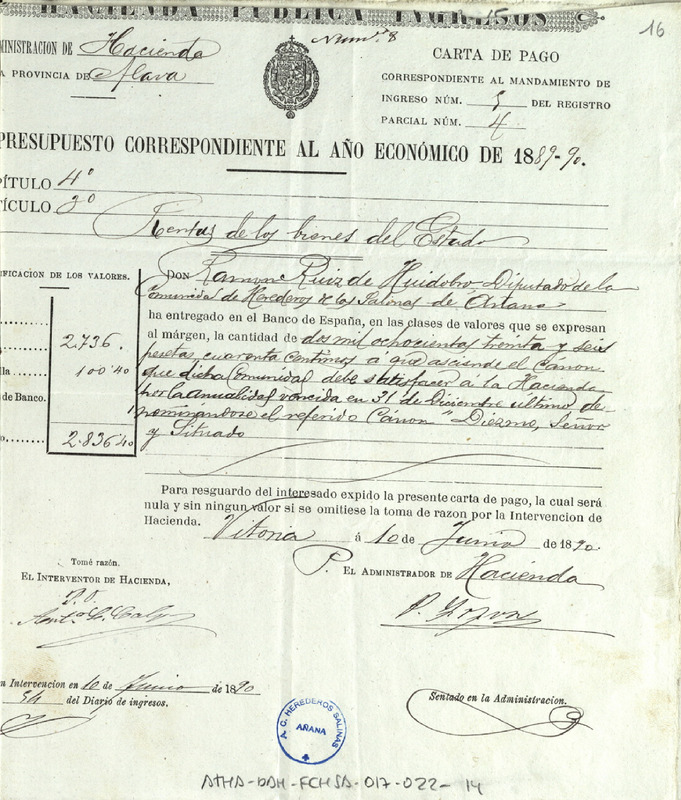 HACIENDA PÚBLICA INGRESOS
16
Num.º 8
MINISTRACION DE Hacienda
A PROVINCIA DE Alava
CARTA DE PAGO
CORRESPONDIENTE AL MANDAMIENTO DE
INGRESO NÚM. 5 DEL REGISTRO
PARCIAL NÚM. 4
PRESUPUESTO CORRESPONDIENTE AL AÑO ECONÓMICO DE 1889-90.
PÍTULO 4º
TÍCULO 2º
Rentas de los bienes del Estado
IFICACION DE LOS VALORES.
2.736.
lla 100'40
de Banco.
2.836'40
DON Ramon Ruiz de Huidobro, Diputado de la
Comunidad de Herederos de las Salinas de Añana
ha entregado en el Banco de España, en las clases de valores que se expresan
al márgen, la cantidad de dos mil ochocientas treinta y seis
pesetas cuarenta centimos á que asciende el cánon
que dicha Comunidad debe satisfacer a la Hacienda
por la anualidad vencida en 31 de Diciembre último de
nominándose el referido Cánon "Diezmo, Señor
y Situado
Para resguardo del interesado expido la presente carta de pago, la cual será
nula y sin ningun valor si se omitiese la toma de razon por la Intervencion de
Hacienda.
Vitoria á 10 de Junio de 1890.
Tomé razón.
EL INTERVENTOR DE HACIENDA,
P.O.
P. EL ADMINISTRADOR DE Hacienda
n Intervencion en 10 de Junio de 1890
54 del Diario de ingresos.
Sentado en la Administracion.
A. C. HEREDEROS SALINAS
AÑANA
ATHA-DAH-FCHSA-017-022-14